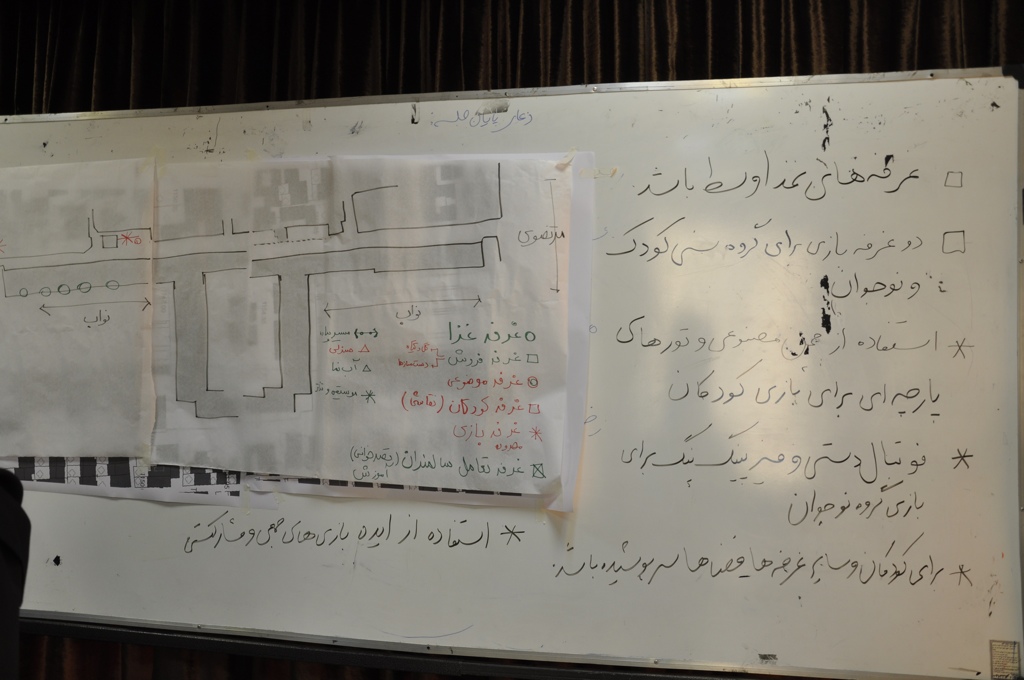 دعای پایان جلسه:
عرفه‌های غذا وسط باشد
دو غرفه بازی برای گروه سنی کودک
و نوجوان
استفاده از چمن مصنوعی و تورهای
پارچه ای برای بازی کودکان
فوتبال دستی و میز پینگ پنگ برای
بازی گروه نوجوان
برای کودکان و سایر غرفه ها فضاها سرپوشیده باشد.
استفاده از ایده بازی‌های جمعی و مشارکتی
مرتضوی
نواب
نواب
غرفه غذا
غرفه فروش
غرفه موضوعی
غرفه کودکان (نقاشی)
غرفه بازی
غرفه تعامل سالمندان (قصه‌خوانی)
آموزش
مسیر پیاده
صندلی
آب نما